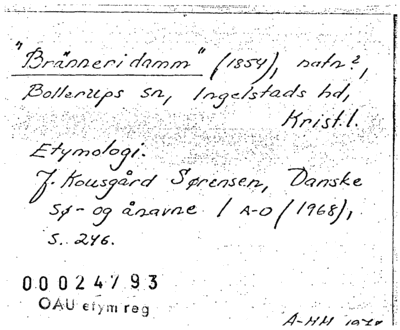 "Bränneridamm" (1854), natn 2,
Bollerups sn, Ingelstads hd,
Krist.l.
Etymologi.
J. Kousgård Sørensen, Danske
sø- og ånavne 1 A-D (1968),
s. 246.
00024793
OAU etym reg
A-MM